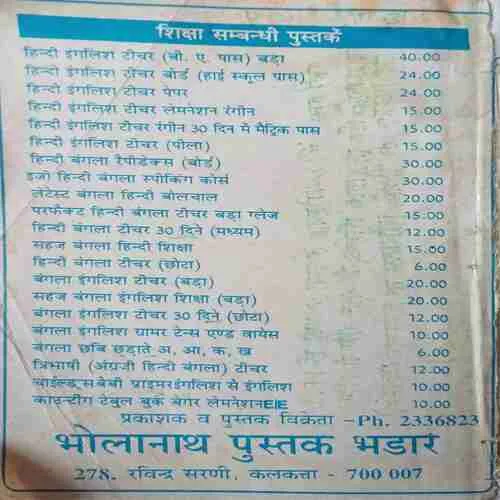 शिक्षा सम्बन्धी पुस्तकें
हिन्दी इंगलिश टीचर (बी. ए. पास) बड़ा 40.00
हिन्दी इंगलिश टीचर बोर्ड (हाई स्कूल पास) 24.00
हिन्दी इंगलिश टीचर पेपर 24.00
हिन्दी इंगलिश टीचर लेमनेशन रंगीन 15.00
हिन्दी इंगलिश टीचर रंगीन 30 दिन में मैट्रिक पास 15.00
हिन्दी इंगलिश टीचर (पीला) 15.00
हिन्दी बंगला रैपीडेक्स (बोर्ड) 30.00
इजी हिन्दी बंगला स्पीकिंग कोर्स 30.00
लेटेस्ट बंगला हिन्दी बोलचाल 20.00
परफैक्ट हिन्दी बंगला टीचर बड़ा ग्लेज 15.00
हिन्दी बंगला टीचर 30 दिने (मध्यम) 12.00
सहज बंगला हिन्दी शिक्षा 15.00
हिन्दी बंगला टीचर (छोटा) 6.00
बंगला इंगलिश टीचर (बड़ा) 20.00
सहज बंगला इंगलिश शिक्षा (बड़ा) 20.00
बंगला इंगलिश टीचर 30 दिने (छोटा) 12.00
बंगला इंगलिश ग्रामर टेन्स एण्ड वायेस 10.00
बंगला छबि छड़ाते अ, आ, क, ख 6.00
त्रिभाषी (अंग्रजी हिन्दी बंगला) टीचर 12.00
चाईल्ड्स बेबी प्राइमर इंगलिश से इंगलिश 10.00
काउन्टींग टेबुल बुक बंगर लेमनेशन 10.00
प्रकाशक व पुस्तक विक्रेता –Ph. 2336823
भोलानाथ पुस्तक भंडार
278, रविन्द्र सरणी, कलकत्ता - 700 007